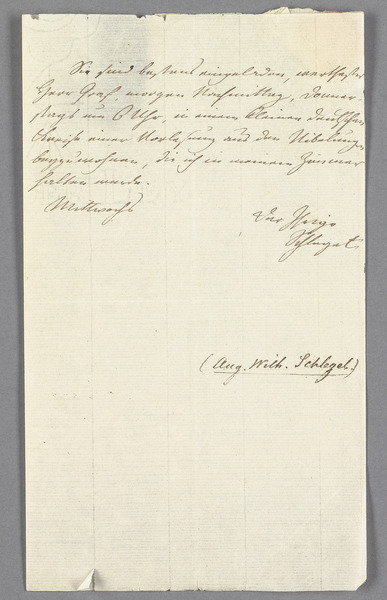 Sie sind bestens eingeladen, werthester
Herr Graf, morgen Nachmittag, Donner-
stags um 6 Uhr, in einem kleinen deutschen
Kreise einer Vorlesung aus den Nibelungen
beyzuwohnen, die ich in meinem Zimmer
halten werde.
Mittwochs
Der Ihrige
Schlegel
(Aug. Wilh. Schlegel.)